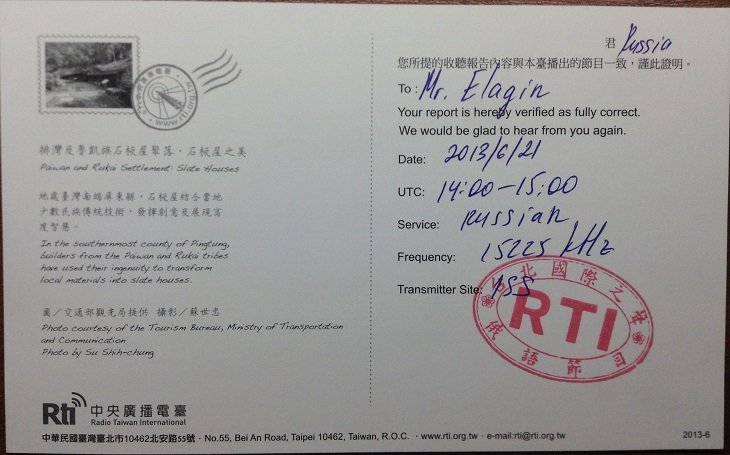 排灣及魯凱族石板屋聚落，石板屋之美
Paiwan and Rukai Settlement: Slate Houses
地處臺灣南端屏東縣，石板屋結合當地
少數民族傳統技術，發揮創意及展現高
度智慧。
In the southernmost county of Pingtung,
builders from the Paiwan and Rukai tribes
have used their ingenuity to transform
local materials into slate houses.
圖／交通部觀光局提供 攝影／蘇世忠
Photo courtesy of the Tourism Bureau, Ministry of Transportation
and Communication
Photo by Su Shih-chung
Rti 中央廣播電臺
Radio Taiwan International
中華民國臺灣臺北市10462北安路55號．No.55, Bei An Road, Taipei 10462, Taiwan, R.O.C. ．www.rti.org.tw．e-mail:rti@rti.org.tw
君 Russia
您所提的收聽報告內容與本臺播出的節目一致，謹此證明。
To : Mr. Elagin
Your report is hereby verified as fully correct.
We would be glad to hear from you again.
Date: 2013/6/21
UTC: 14:00-15:00
Service: Russian
Frequency: 15225 kHz
Transmitter Site:
北國際之聲
RTI
俄語節目
2013-6